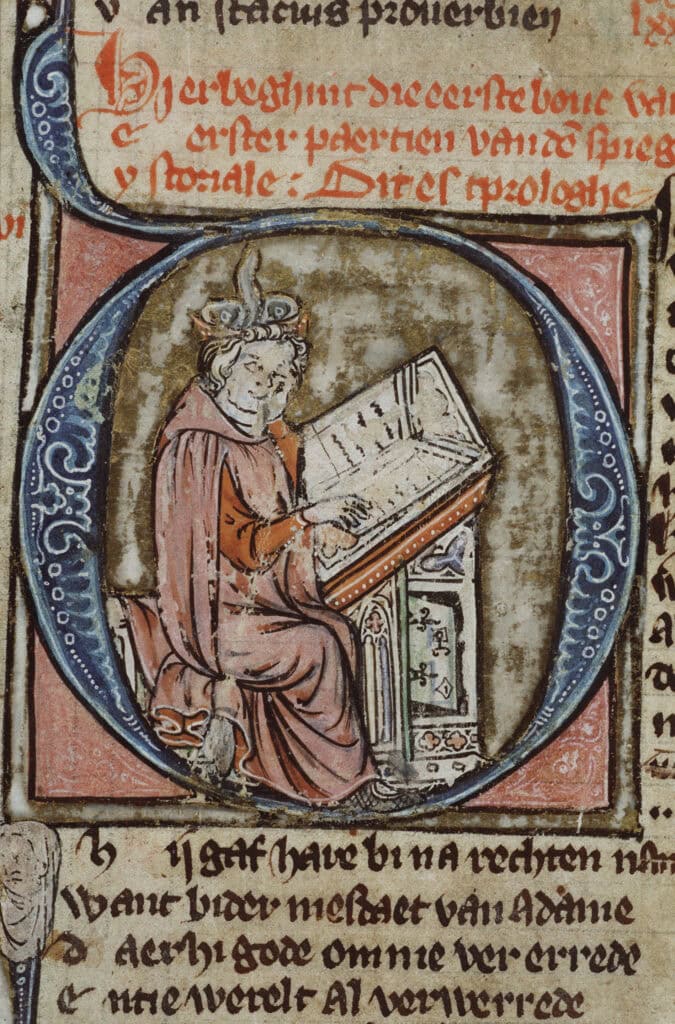 v an stacius prouerbien
Hier beghint die eerste bouc va
e erster paertien van dē spieg
y storiale : Dit es tprologhe
h ij gaf hare bi na rechten
want bider mesdaet van adame
d aer hi gode omme ver errede
e ntie werelt al verwerrede